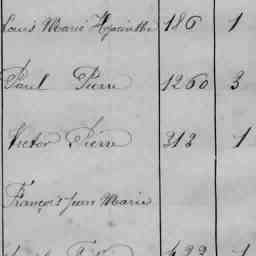 Louis Marie Hyacinthe 186 1
Paul Pierre 1260 3
Victor Pierre 312 1
François Jean Marie
422 1